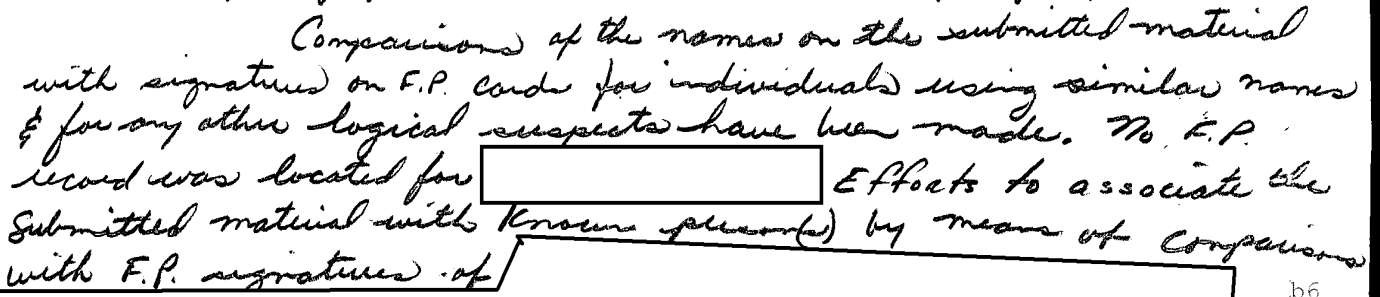 Comparisons of the names on the submitted material
with signatures on F.P. cards for individuals using similar names
& for any other logical suspects have been made. No F.P.
record was located for Efforts to associate the
Submitted material with known person(s) by means of comparisons
with F.P. signatures of
b6